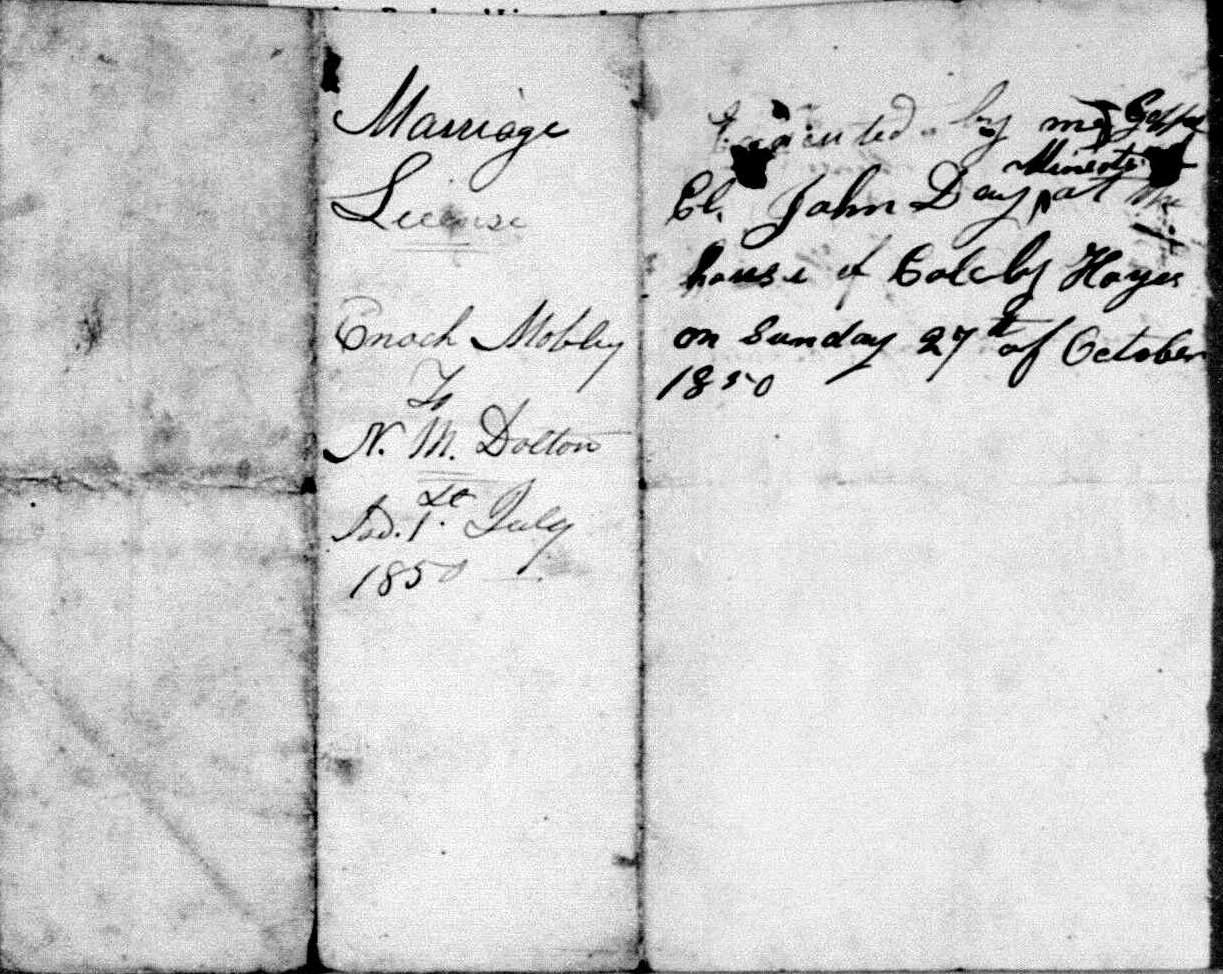 Marriage
License
Enoch Mobley
To
N. M. Dolton
Isd. 1st July
1850
Executed by me Gospel
Minester
El. John Day, at the
house of Hayes
on Sunday 27th of October
1850